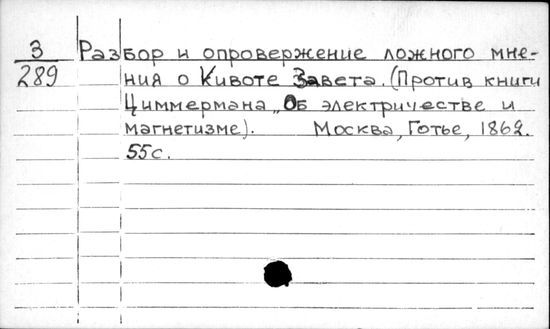 З/289
Разбор и опровержение ложного мне-
ния о Кивоте Завета. (Против книги
Циммермана „Об электричестве и
магнетизме).     Москва, Готье, 1862.
55с.